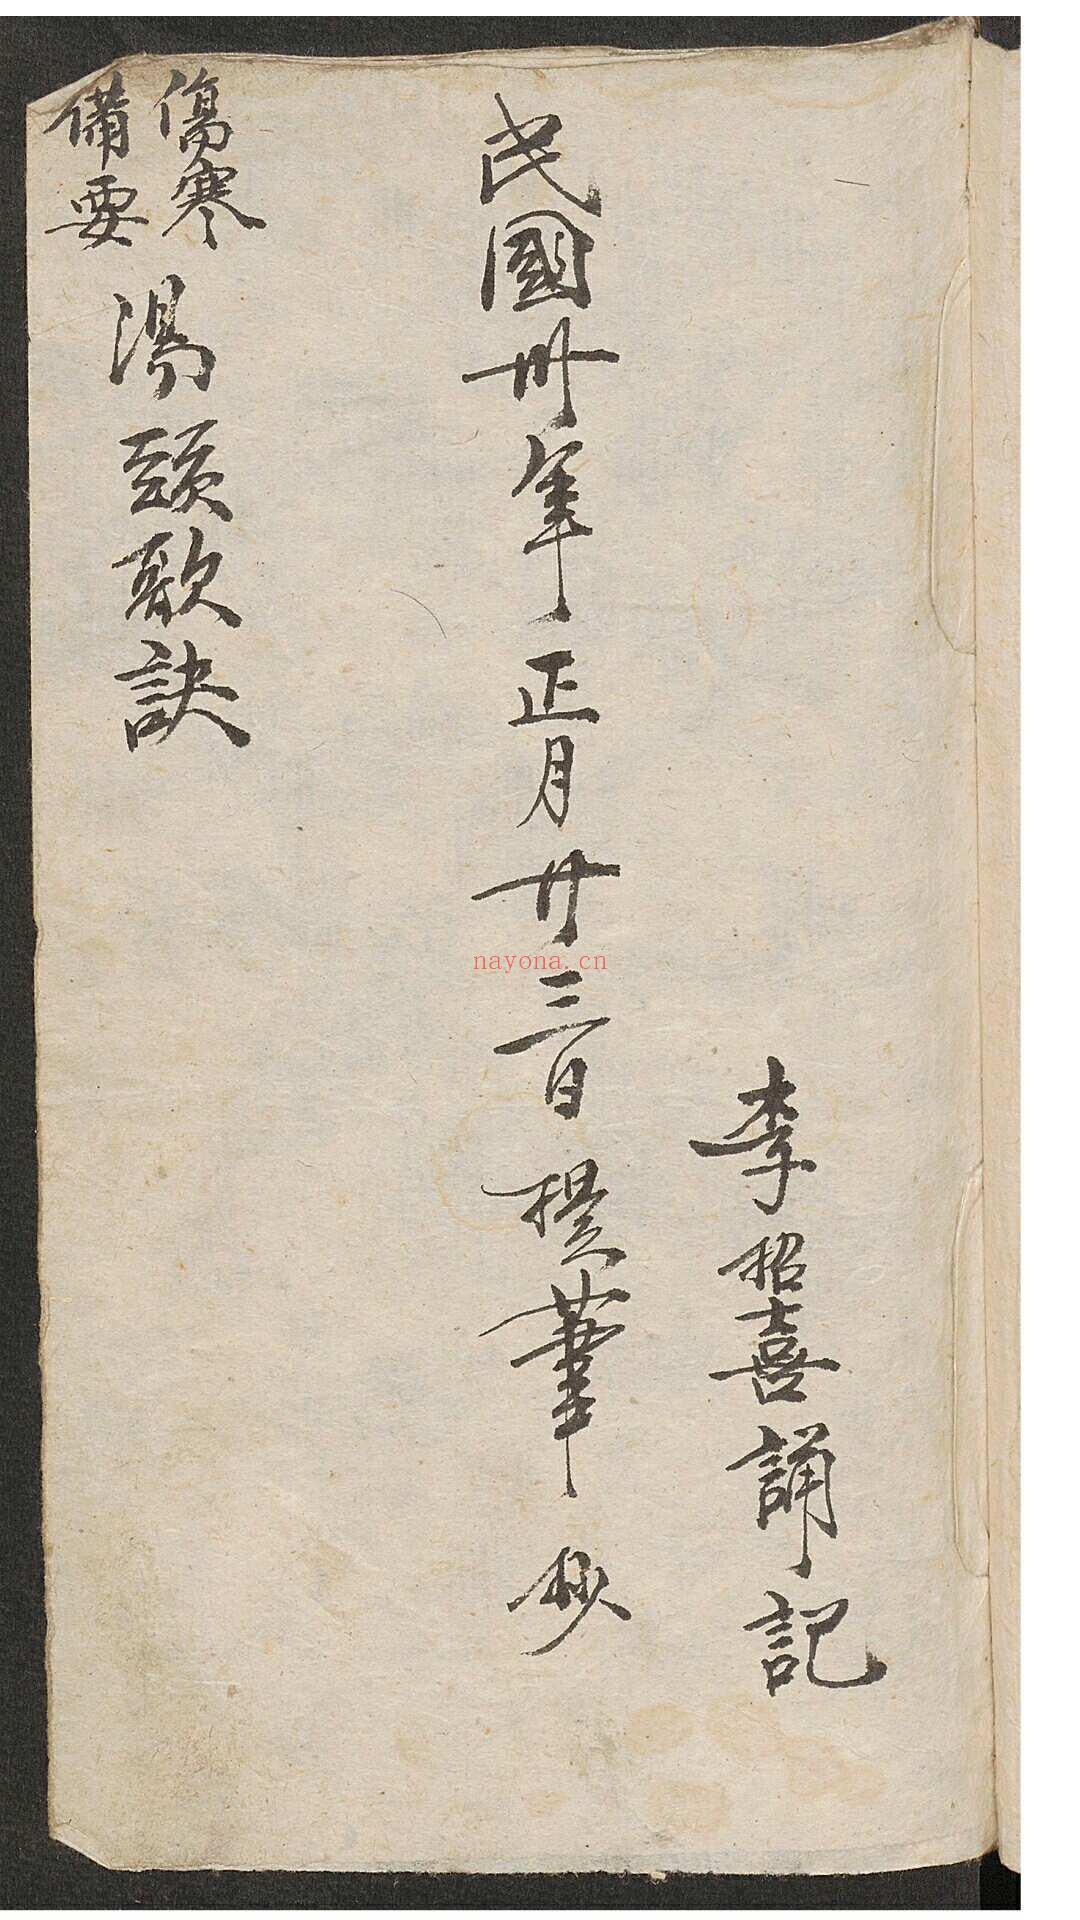 李招喜誦記
民國卅年正月廿三日提筆抄
傷寒
備要
湯頭歌訣
nayona.cn